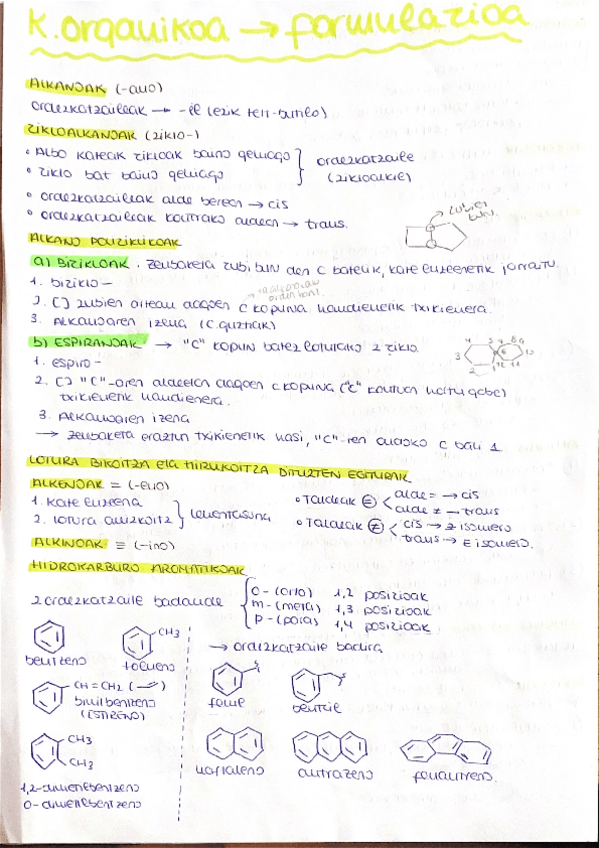 K. organikoa → formulazioa
ALKANOAK (-ano)
ordezkatzaileak → -il (ezik tert-butilo)
ZIKLOALKANOAK (ziklo-)
• Albo kateak zikloak baino gehiago } ordezkatzaile
• ziklo bat baino gehiago (zikloalkil)
• ordezkatzaileak alde berean → cis
• ordezkatzaileak kontrako aldean → trans.
zubien buru.
ALKANO POLIZIKLIKOAK
a) BIZIKLOAK. zenbaketa zubi buru den C batetik, kate luzeenetik jarraitu.
1. biziklo-
2. [] zubien artean dagoen C kopurua handienetik txikienera.
3. Alkanoaren izena (C guztiak)
b) ESPIRANOAK → "C" kopuru batez loturako 2 ziklo
3 4 5 7 8 9 10
2 1 12 11
1. espiro-
2. [] "C"-aren aldeetan dagoen C kopurua ("C" kontuan hartu gabe)
txikienetik handienera.
3. Alkanoaren izena
→ zenbaketa eraztun txikienetik hasi, "C"-ren ondoko C bati 1
LOTURA BIKOITZA eta HIRUKOITZA DITUZTEN EGITURAK
ALKENOAK = (-eno)
1. Kate luzeena } lehentasuna
2. lotura anizkoitz
• Taldeak (=) < alde = → cis
alde ≠ → trans
• Taldeak (≠) < cis → z isomero
trans → E isomero.
ALKINOAK ≡ (-ino)
HIDROKARBURO AROMATIKOAK
2 ordezkatzaile badaude { o- (orto) 1,2 posizioak
m- (meta) 1,3 posizioak
p- (para) 1,4 posizioak
→ ordezkatzaile badira
CH3
bentzeno tolueno
CH=CH2
binilbentzeno
(ESTIRENO)
fenil bentzil
CH3
CH3
naftaleno antrazeno fenantreno.
1,2-dimetilbentzeno
o-dimetilbentzeno